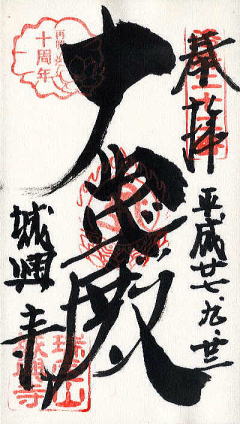 奉拝
平成廿七、九、廿三
大悲殿
城興寺
十周年
瑞寶山
城興寺